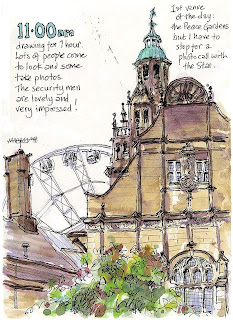 11:00am
drawing for 1 hour.
Lots of people come
to look and some
take photos.
The security men
are lovely and
very impressed!
1st venue
of the day:
the Peace Gardens
but I have to
stop for a
photocall with
the Star.